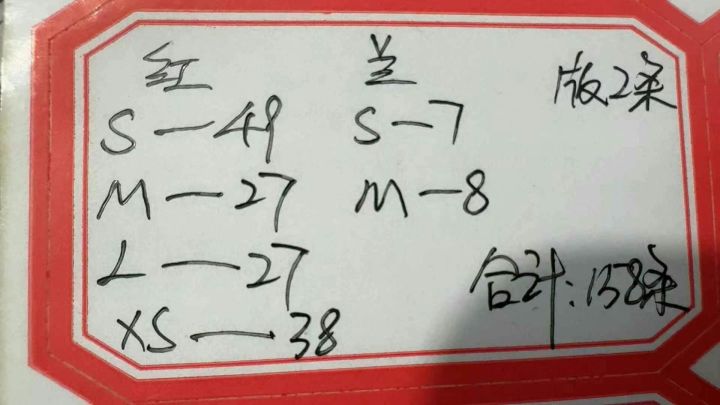 红 兰 版2条
S—49 S—7
M—27 M—8
L—27
XS—38 合计:158条